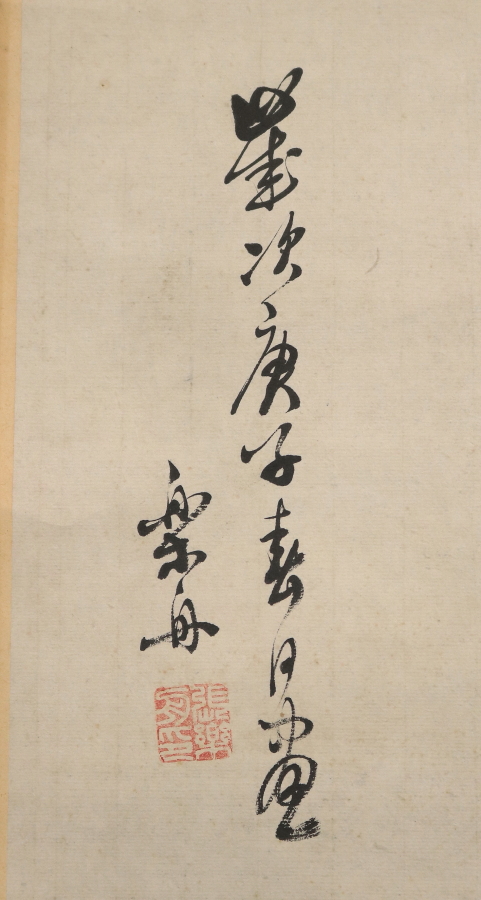 歲次庚子春日畫
樂舟
張樂舟印